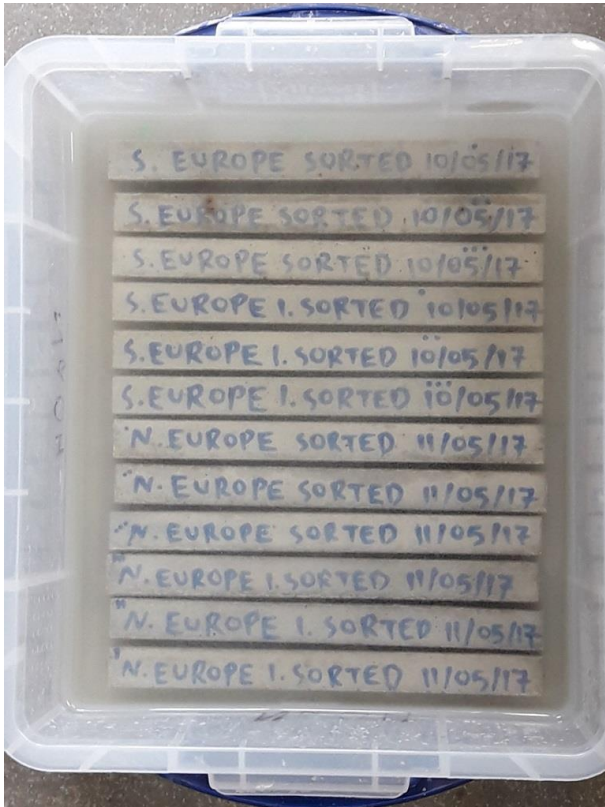 S. EUROPE SORTED 10/05/17
S. EUROPE SORTED 10/05/17
S. EUROPE SORTED 10/05/17
S. EUROPE I. SORTED 10/05/17
S. EUROPE I. SORTED 10/05/17
S. EUROPE I. SORTED 10/05/17
N. EUROPE SORTED 11/05/17
N. EUROPE SORTED 11/05/17
N. EUROPE SORTED 11/05/17
N. EUROPE I. SORTED 11/05/17
N. EUROPE I. SORTED 11/05/17
N. EUROPE I. SORTED 11/05/17